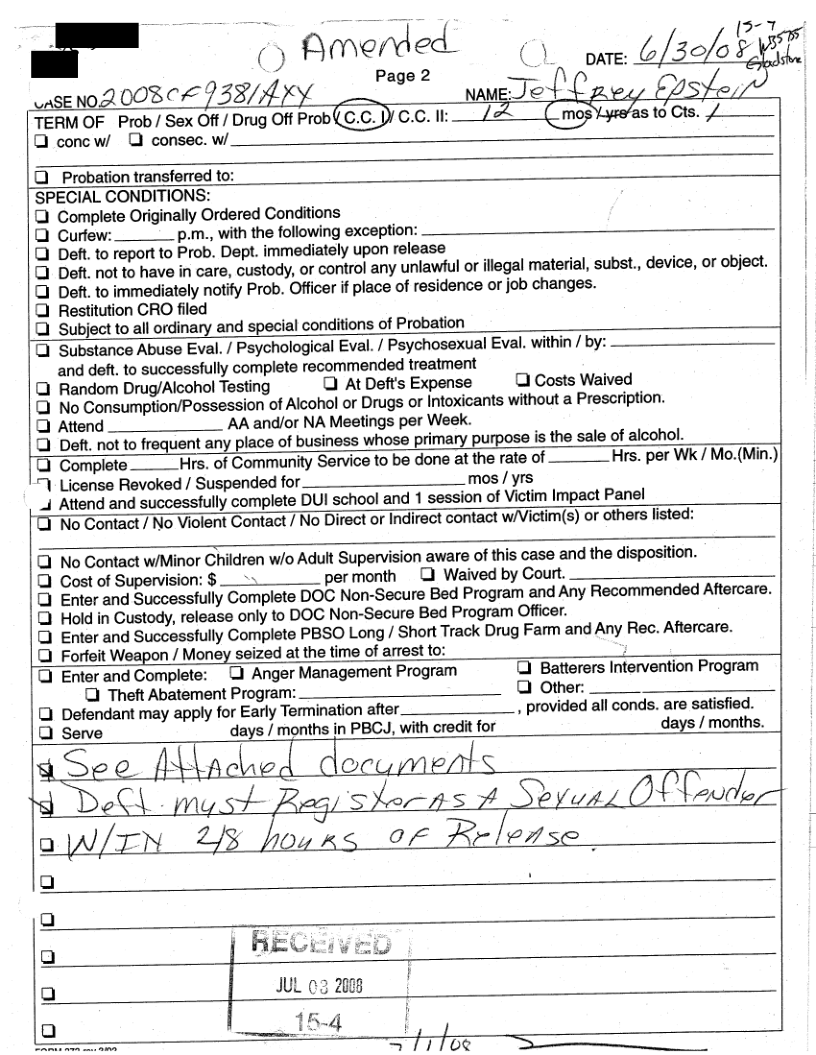 Amended
15-7
DATE: 6/30/08
Gladstone
Page 2
CASE NO. 2008CF9381AXX NAME: Jeffrey EPStein
TERM OF Prob / Sex Off / Drug Off Prob / C.C. I / C.C. II: 12 mos / yrs as to Cts. 1
❑ conc w/ ❑ consec. w/
❑ Probation transferred to:
SPECIAL CONDITIONS:
❑ Complete Originally Ordered Conditions
❑ Curfew: p.m., with the following exception:
❑ Deft. to report to Prob. Dept. immediately upon release
❑ Deft. not to have in care, custody, or control any unlawful or illegal material, subst., device, or object.
❑ Deft. to immediately notify Prob. Officer if place of residence or job changes.
❑ Restitution CRO filed
❑ Subject to all ordinary and special conditions of Probation
❑ Substance Abuse Eval. / Psychological Eval. / Psychosexual Eval. within / by:
and deft. to successfully complete recommended treatment
❑ Random Drug/Alcohol Testing ❑ At Deft's Expense ❑ Costs Waived
❑ No Consumption/Possession of Alcohol or Drugs or Intoxicants without a Prescription.
❑ Attend AA and/or NA Meetings per Week.
❑ Deft. not to frequent any place of business whose primary purpose is the sale of alcohol.
❑ Complete Hrs. of Community Service to be done at the rate of Hrs. per Wk / Mo.(Min.)
❑ License Revoked / Suspended for mos / yrs
❑ Attend and successfully complete DUI school and 1 session of Victim Impact Panel
❑ No Contact / No Violent Contact / No Direct or Indirect contact w/Victim(s) or others listed:
❑ No Contact w/Minor Children w/o Adult Supervision aware of this case and the disposition.
❑ Cost of Supervision: $ per month ❑ Waived by Court.
❑ Enter and Successfully Complete DOC Non-Secure Bed Program and Any Recommended Aftercare.
❑ Hold in Custody, release only to DOC Non-Secure Bed Program Officer.
❑ Enter and Successfully Complete PBSO Long / Short Track Drug Farm and Any Rec. Aftercare.
❑ Forfeit Weapon / Money seized at the time of arrest to:
❑ Enter and Complete: ❑ Anger Management Program ❑ Batterers Intervention Program
❑ Theft Abatement Program: ❑ Other:
❑ Defendant may apply for Early Termination after , provided all conds. are satisfied.
❑ Serve days / months in PBCJ, with credit for days / months.
See Attached documents
Deft. must Register as a Sexual Offender
❑ W/IN 48 hours of Release.
RECEIVED
JUL 03 2008
15-4
7/1/08